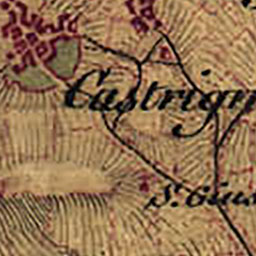 Castrign
S. Gius